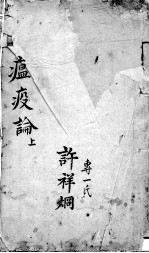 瘟疫論上
專一氏
許祥綱